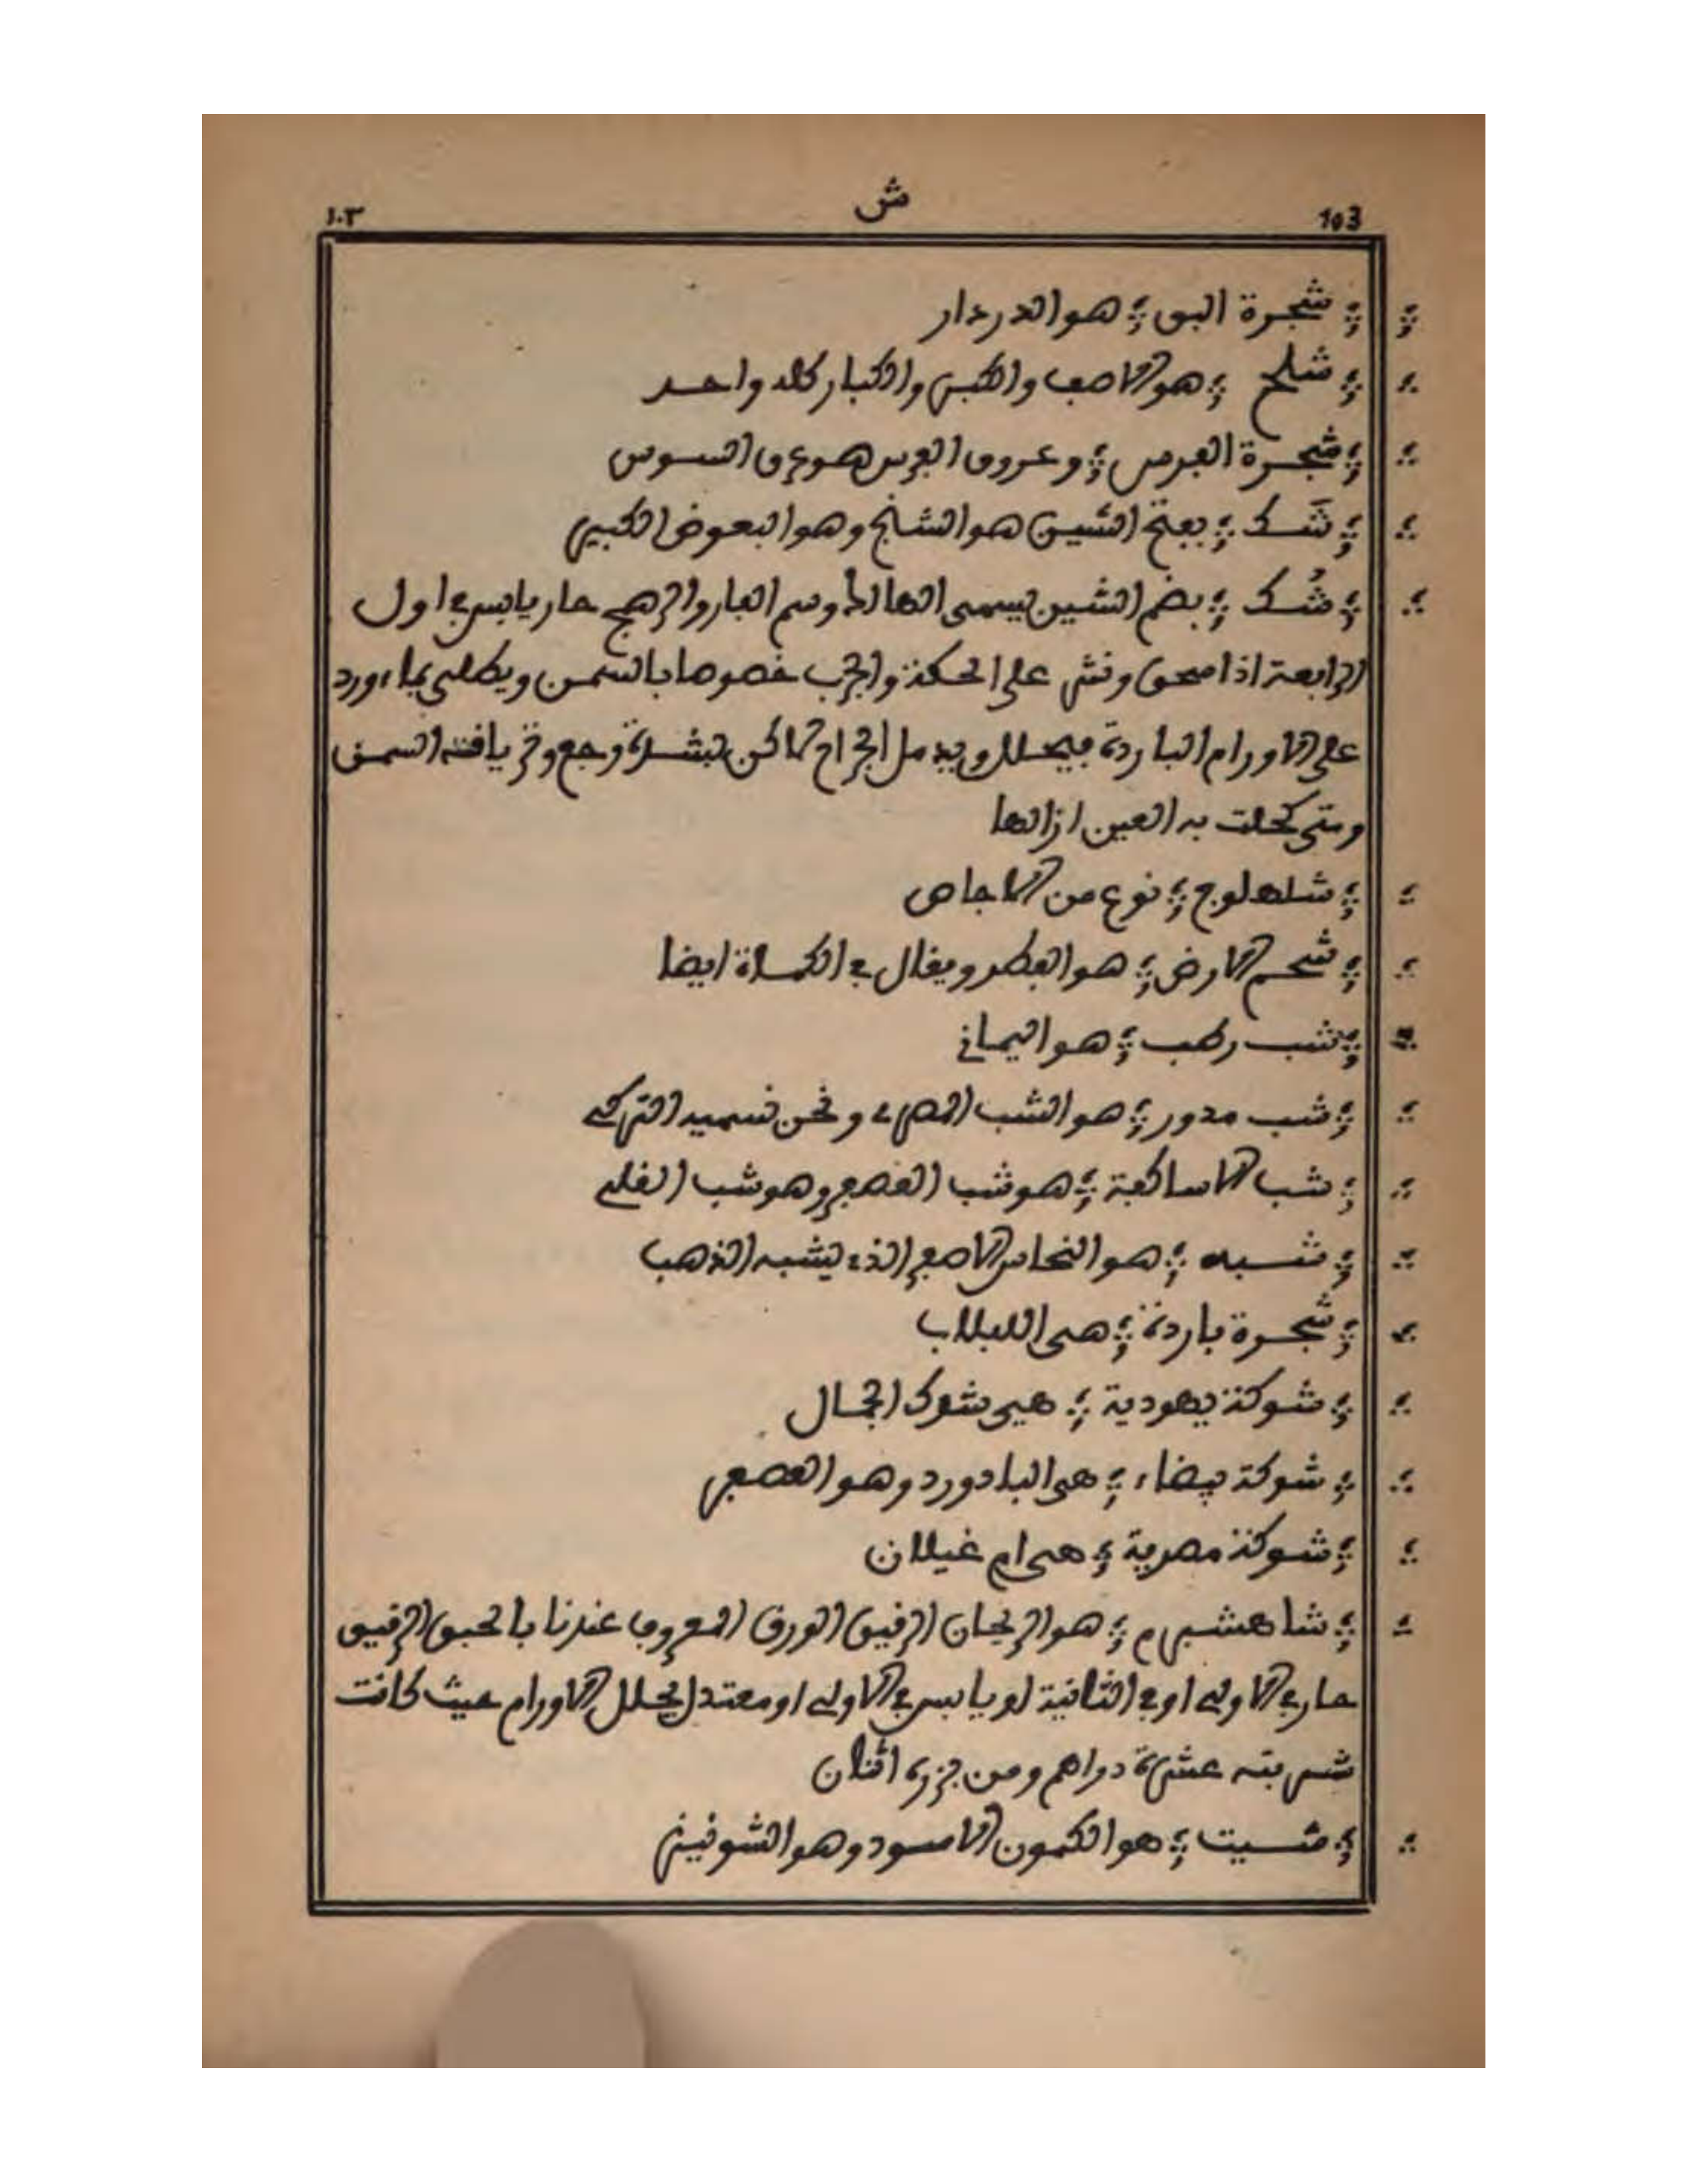 103 ش ١٠٣
شجرة البق ؛ هو الدردار
شلح ؛ هو الاصف والكبر والكبار كله واحد
شجرة الفرس ؛ وعروق الفرس هو عرق السوس
شَك ؛ بفتح الشين هو الشنج وهو البعوض الكبير
شُك ؛ بضم الشين يسمى الهالك وسم الفار والرهج حار يابس في اول
الرابعة اذا سحق ونثر على الحكة والجرب خصوصا بالسمن ويطلى بماء ورد
على الاورام الباردة فيحلل ويدمل الجراح لاكن بشدة وجع وترياقه السمن
ومتى كحلت به العين ازالها
شلهلوج ؛ نوع من الاجاص
شحم الارض ؛ هو الفطر ويقال في الكماة ايضا
شب رطب ؛ هو اليماني
شب مدور ؛ هو الشب المصري ونحن نسميه التركي
شب الاساكفة ؛ هو شب العصفر وهو شب القلي
شبه ؛ هو النحاس الاصفر الذي يشبه الذهب
شجرة باردة ؛ هى اللبلاب
شوكة يهودية ؛ هي شوك الجمال
شوكة بيضاء ؛ هى البادورد وهو العصفر
شوكة مصرية ؛ هى ام غيلان
شاهشبرم ؛ هو الريحان الرقيق الورق المعروف عندنا بالحبق الرقيق
حار في الاولى او في الثانية او يابس في الاولى او معتدل يحلل الاورام حيث كانت
شربته عشرة دراهم ومن بزره اثنان
شيت ؛ هو الكمون الاسود وهو الشونيز